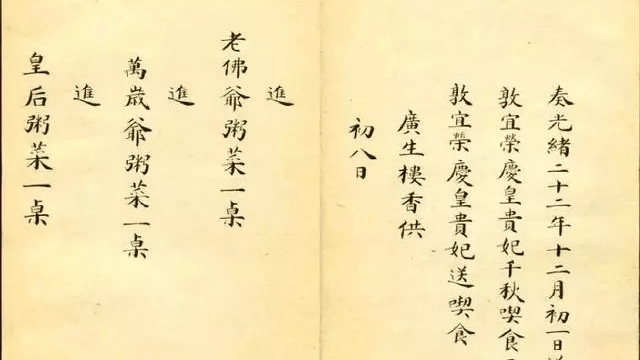 奏光緒二十二年十二月初一日
敦宜榮慶皇貴妃千秋喫食
敦宜榮慶皇貴妃送喫食
廣生樓香供
初八日
進
老佛爺粥菜一桌
進
萬歲爺粥菜一桌
進
皇后粥菜一桌